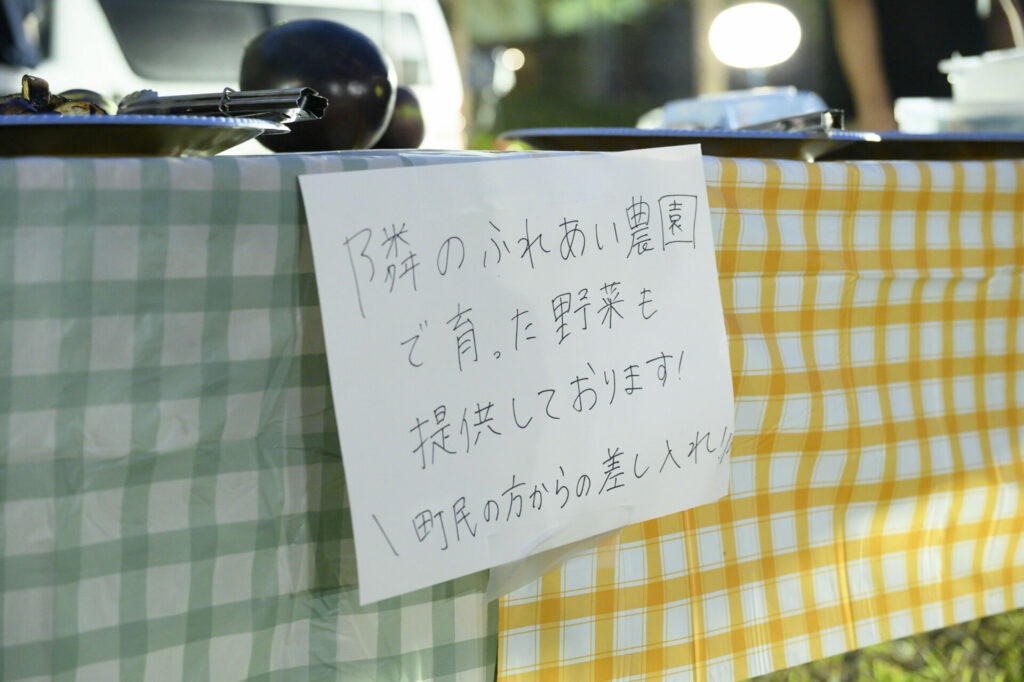 隣のふれあい農園
で育った野菜も
提供しております!
\町民の方からの差し入れ!/